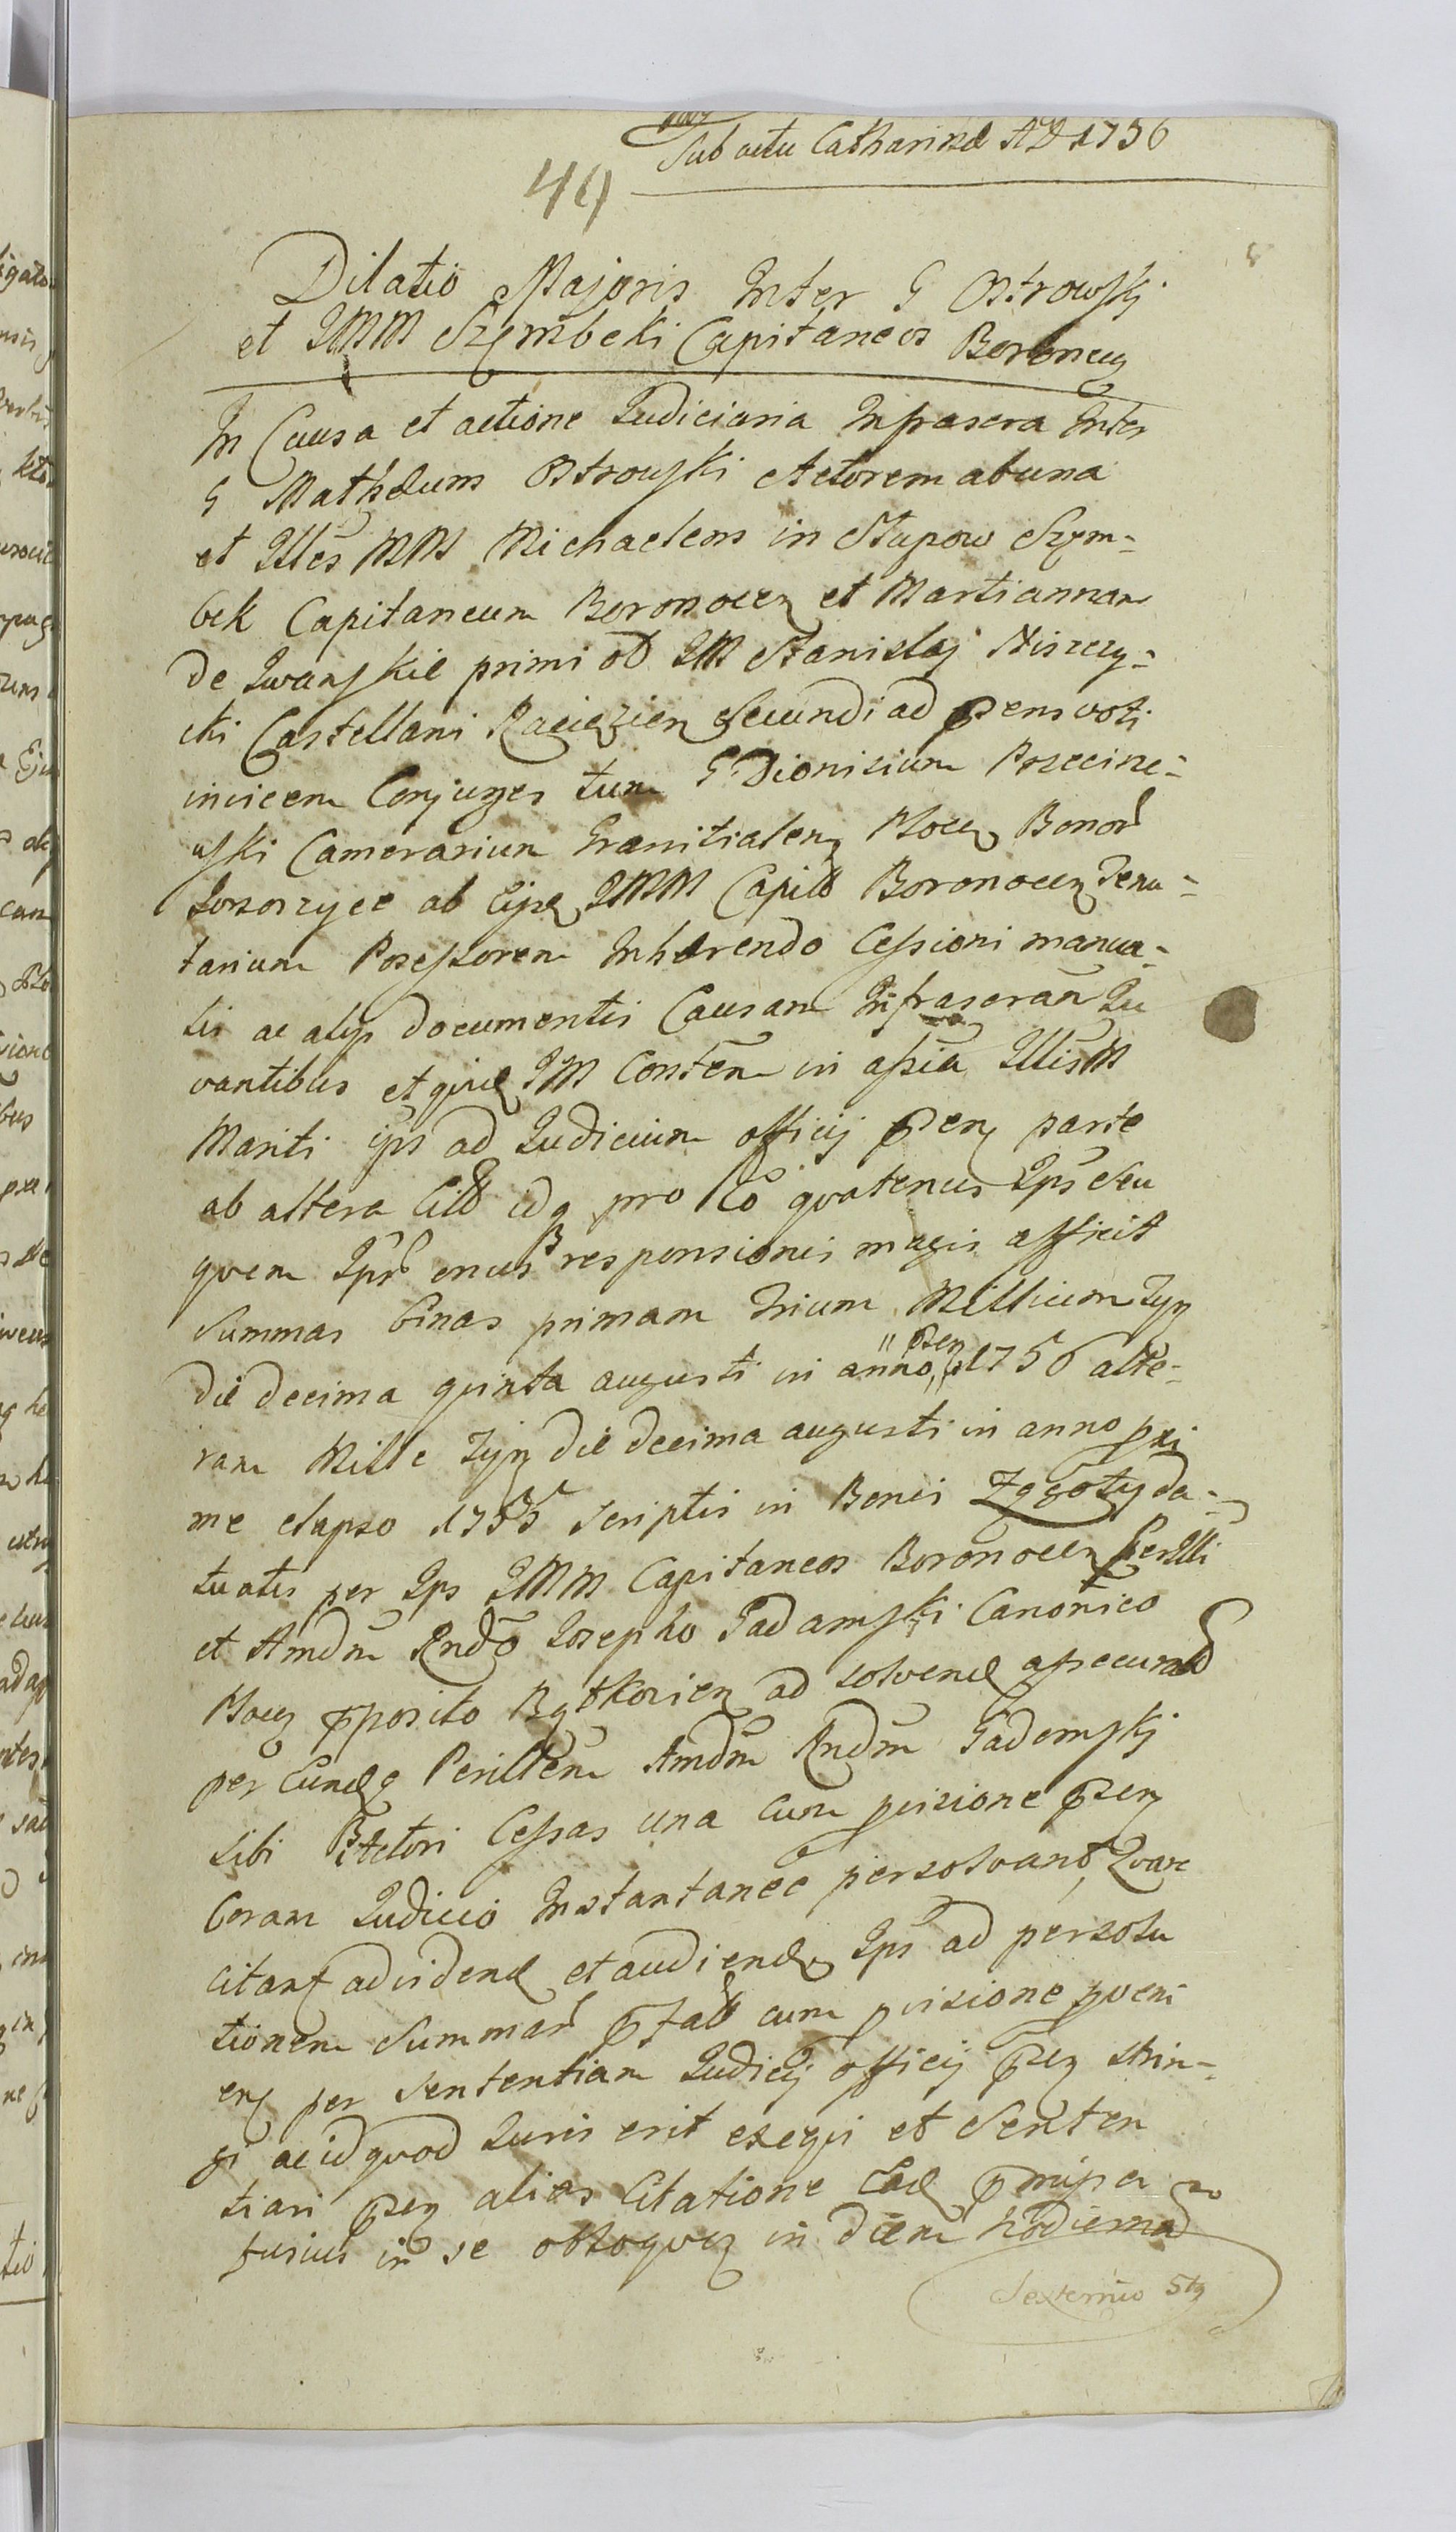 Sub actu Catharinæ AD 1756
49
Dilatio Majoris Inter G Ostrowskj
et IMM Szembeki Capitaneos Boronecz
In Causa et actione Judiciaria Infrascra Inter
G Mathæum Ostrowski Actorem ab una
et Illes MM Michaelem in Słupow Szem-
bek Capitaneum Boronocen et Martiannam
de Iwanskie primi od IM Stanislaj Niszczy-
cki Castellani Raciązien Secundi ad præns voti
invicem Conjuges tum G Dionisium Posccisze-
wski Camerarium Granitialem Płocen Bonor
ab IMM Capit Boronocen Tenu-
tarium Possessorem Inhærendo Cessioni manua-
lis ac alys documentis Causam Infrascram Iu
vantibus et IM Consten in assia Illis M
Mariti ips ad Judicium officij præn parte
ab altera Citt idq pro Eo qvatenus Ips seu
qvem Ipsor onus responsionis magis afficit
Summas binas primam trium Millium Zyn
die decima qvinta augusti in anno præn 1756 alte-
ram Mille Zyn die decima augusti in anno pxi
me elapso 1755 Scriptis in Bonis Zągoty da-
tuatis per Ips IMM Capitaneos Boronocen Perilli
et Amdm Rndo Josepho Gadamski Canonico
Płocen præposito Bądkozien ad solvend assecurat
per Eundq Perillem Amdm Rndm Gadomskj
sibi Actori Cessas una cum pvisione præn
Coram Judicio Instantanee persolvant, Qvare
citant ad vidend et audiend Ips ad persolu
tionem Summar præfatt cum pvisione pveni
en per Sententiam Judicij officij præn strin-
gi ac id qvod Iuris erit exeqvi et Senten
tiari præn alias Citatione Ead præmissa
fusius in se obloqven in diem hodiernam
Sexternio 5tg